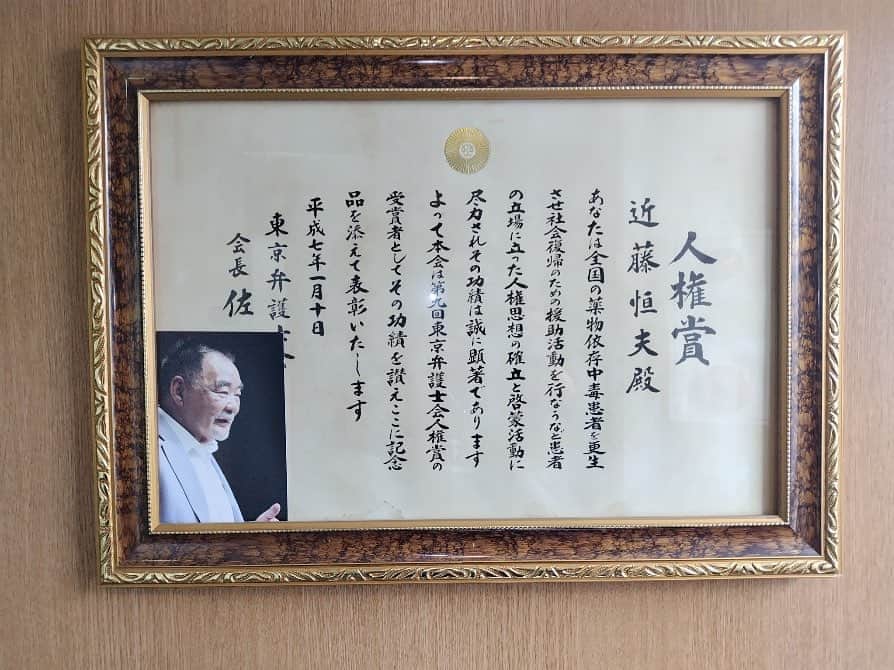 人権賞
近藤恒夫殿
あなたは全国の薬物依存中毒患者を更生
させ社会復帰のための援助活動を行なうなど患者
の立場に立った人権思想の確立と啓蒙活動に
尽力されその功績は誠に顕著であります
よって本会は第九回東京弁護士会人権賞の
受賞者としてその功績を讃えここに記念
品を添えて表彰いたします
平成七年一月十日
東京弁護士会
会長 佐